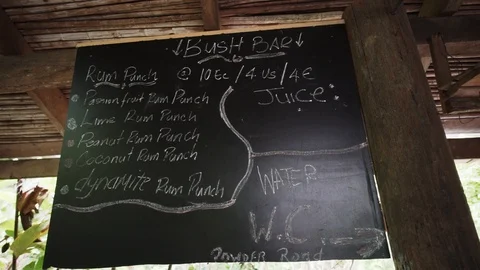 ↓BUSH BAR↓
Rum Punch @ 10 Ec / 4 US / 4 €
Passionfruit Rum Punch
Lime Rum Punch
Peanut Rum Punch
Coconut Rum Punch
dynamite Rum Punch
JUICE
WATER
W.C. →
POWDER Road